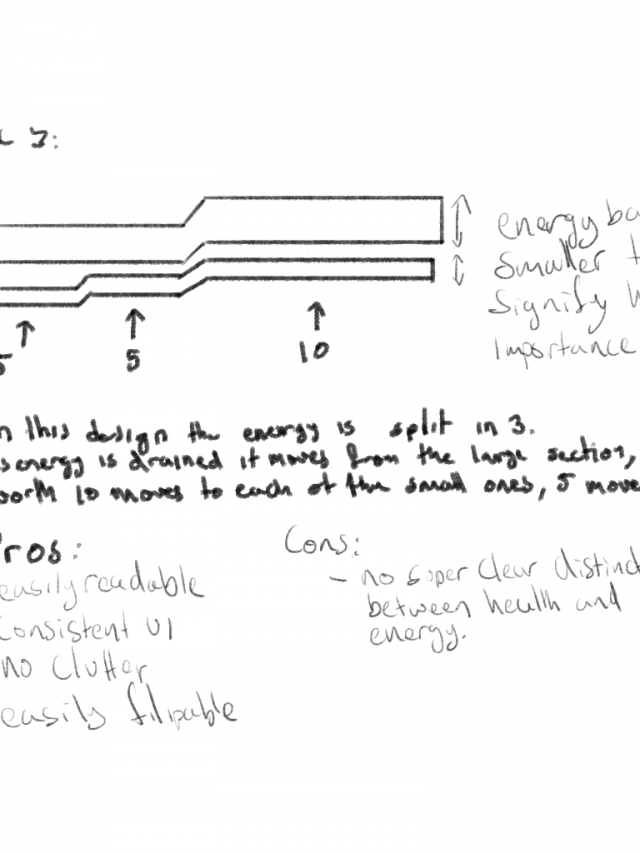 3:
energy ba
smaller t
signify h
importance
5
5
10
n this design the energy is split in 3.
s energy is drained it moves from the large section,
worth 10 moves to each of the small ones, 5 move
ros:
easily readable
consistent UI
no clutter
easily flipable
Cons:
- no super clear distinct
between health and
energy.